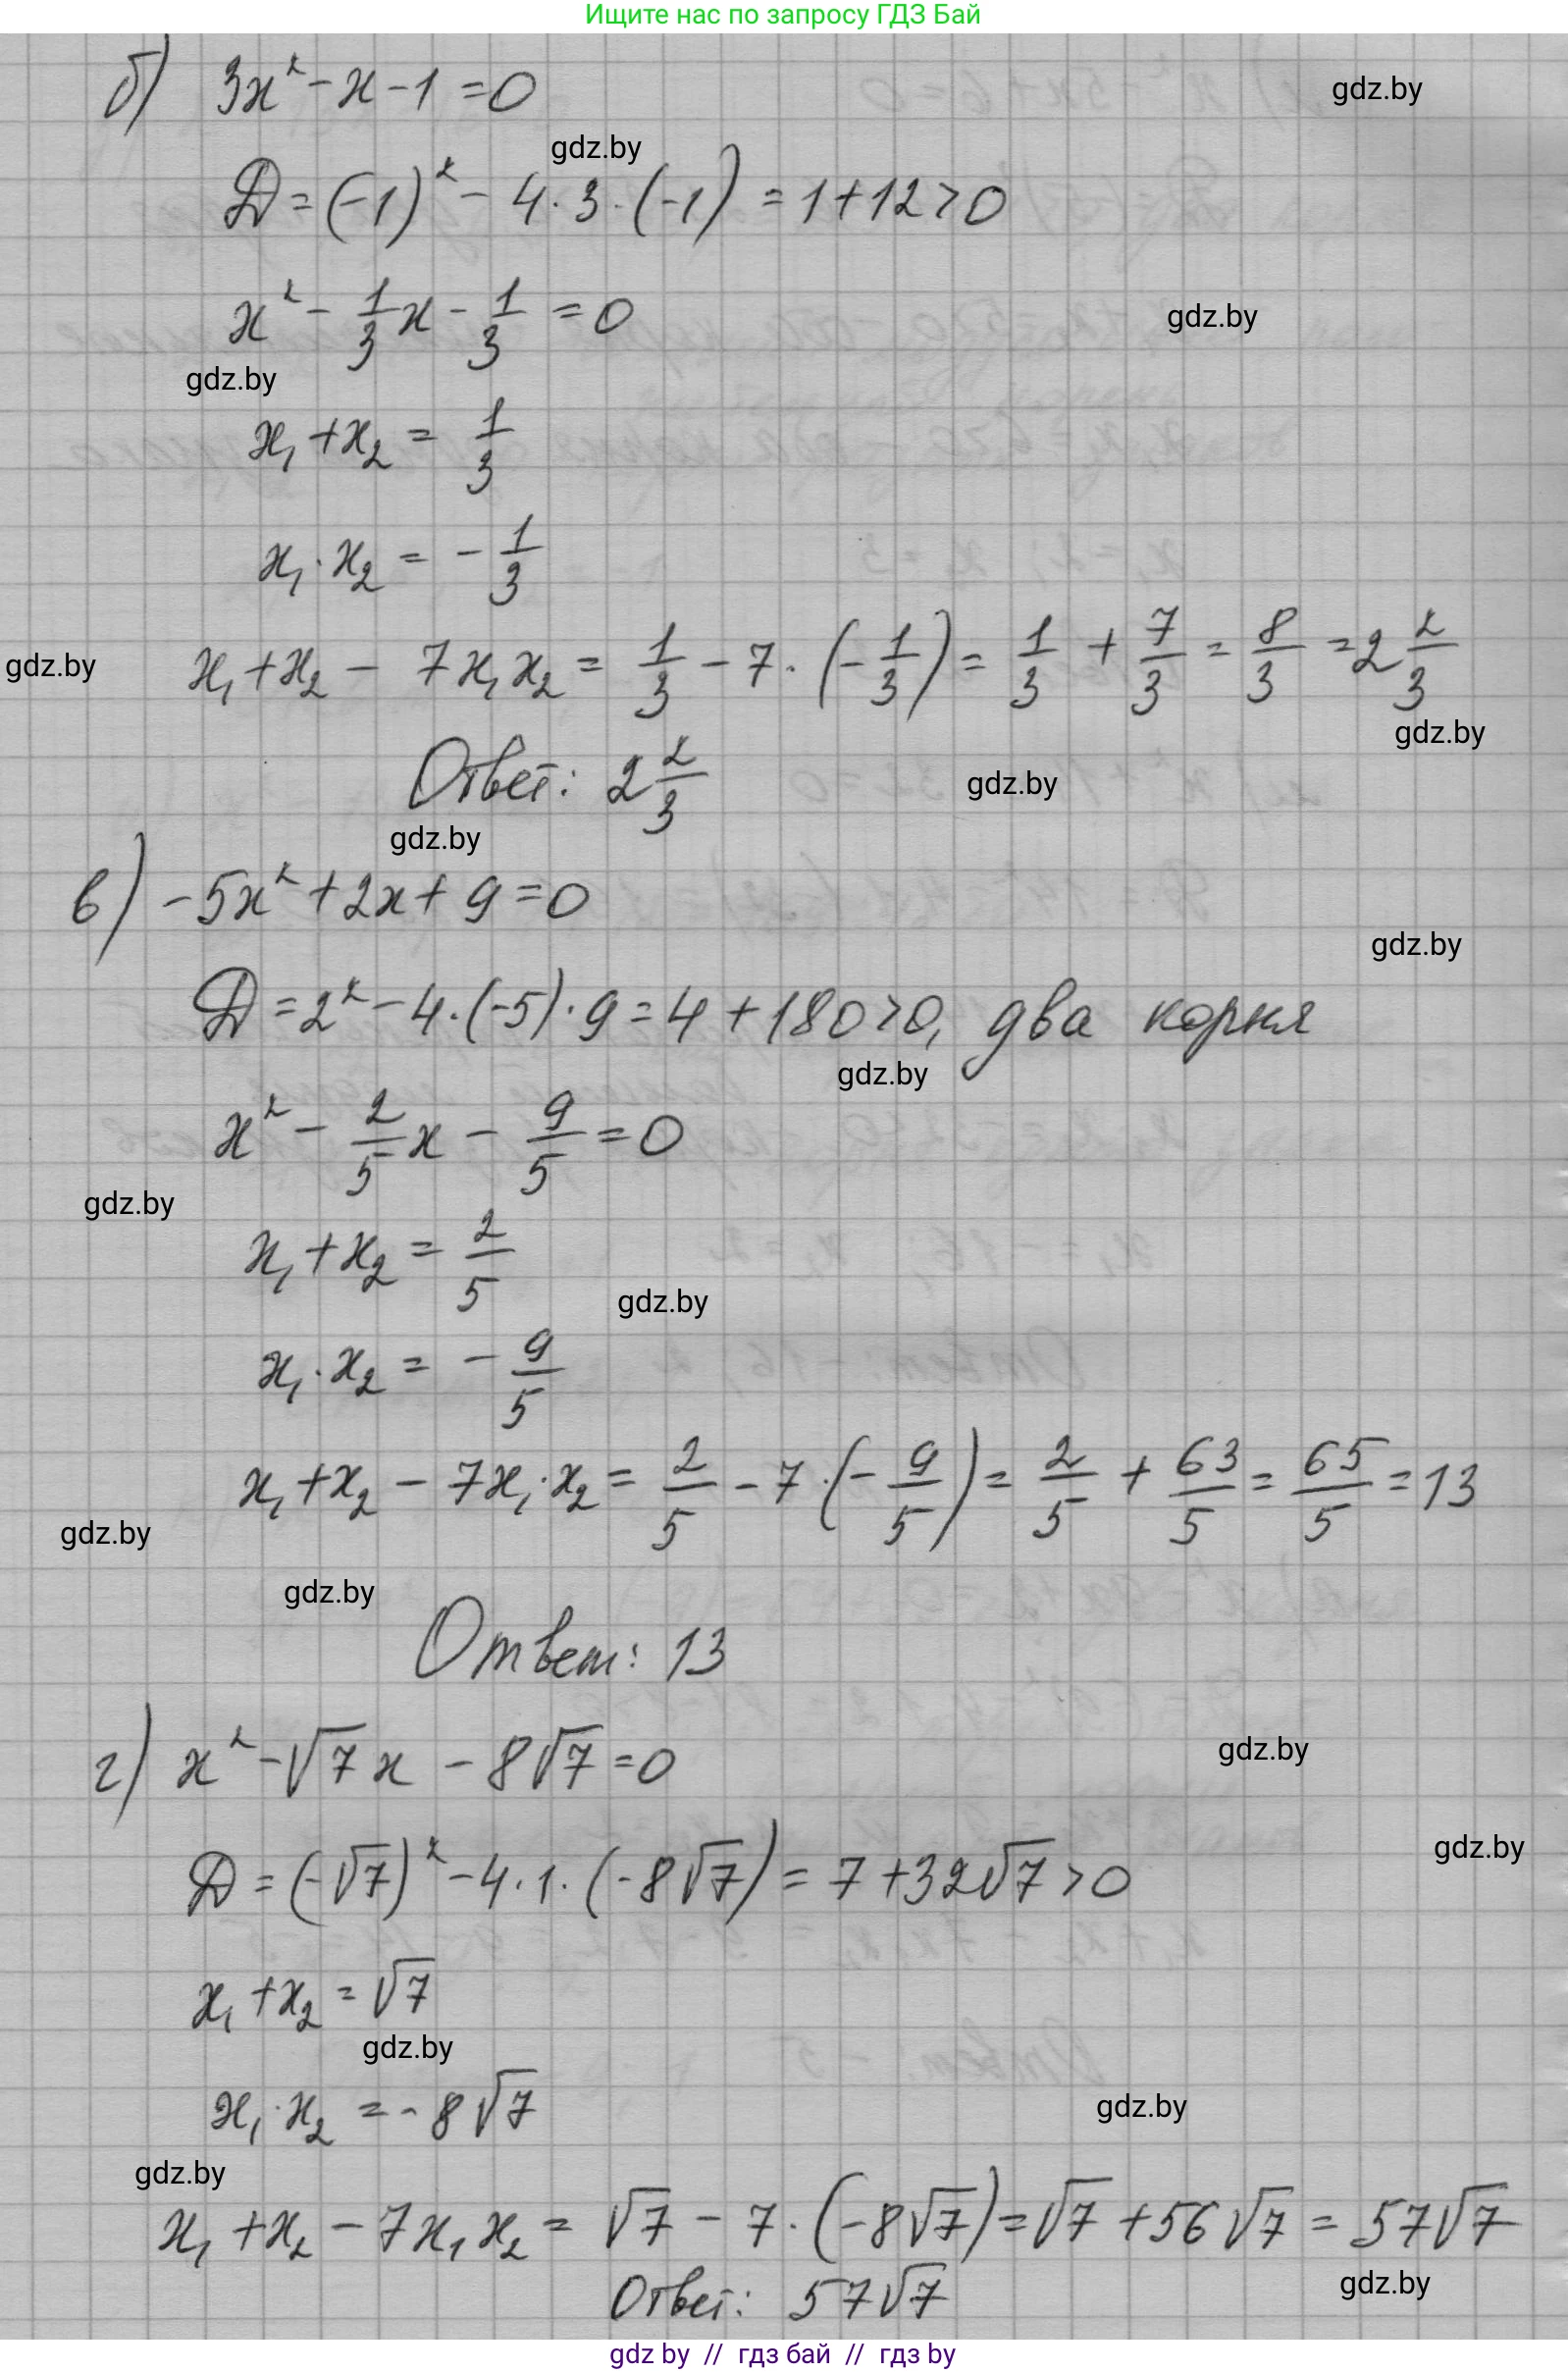 Ищите нас по запросу ГДЗ Бай
б) 3x² - x - 1 = 0
gdz.by
gdz.by
D = (-1)² - 4·3·(-1) = 1 + 12 > 0
x² - 1/3 x - 1/3 = 0
gdz.by
gdz.by
x₁ + x₂ = 1/3
x₁·x₂ = - 1/3
gdz.by
x₁ + x₂ - 7x₁x₂ = 1/3 - 7·(-1/3) = 1/3 + 7/3 = 8/3 = 2 2/3
gdz.by
Ответ: 2 2/3
gdz.by
gdz.by
в) -5x² + 2x + 9 = 0
gdz.by
D = 2² - 4·(-5)·9 = 4 + 180 > 0, два корня
gdz.by
x² - 2/5 x - 9/5 = 0
gdz.by
x₁ + x₂ = 2/5
gdz.by
x₁·x₂ = - 9/5
x₁ + x₂ - 7x₁·x₂ = 2/5 - 7·(-9/5) = 2/5 + 63/5 = 65/5 = 13
gdz.by
gdz.by
Ответ: 13
г) x² - √7 x - 8√7 = 0
gdz.by
gdz.by
D = (-√7)² - 4·1·(-8√7) = 7 + 32√7 > 0
x₁ + x₂ = √7
gdz.by
x₁·x₂ = - 8√7
gdz.by
gdz.by
x₁ + x₂ - 7x₁x₂ = √7 - 7·(-8√7) = √7 + 56√7 = 57√7
gdz.by
Ответ: 57√7
gdz by // гдз бай // гдз by